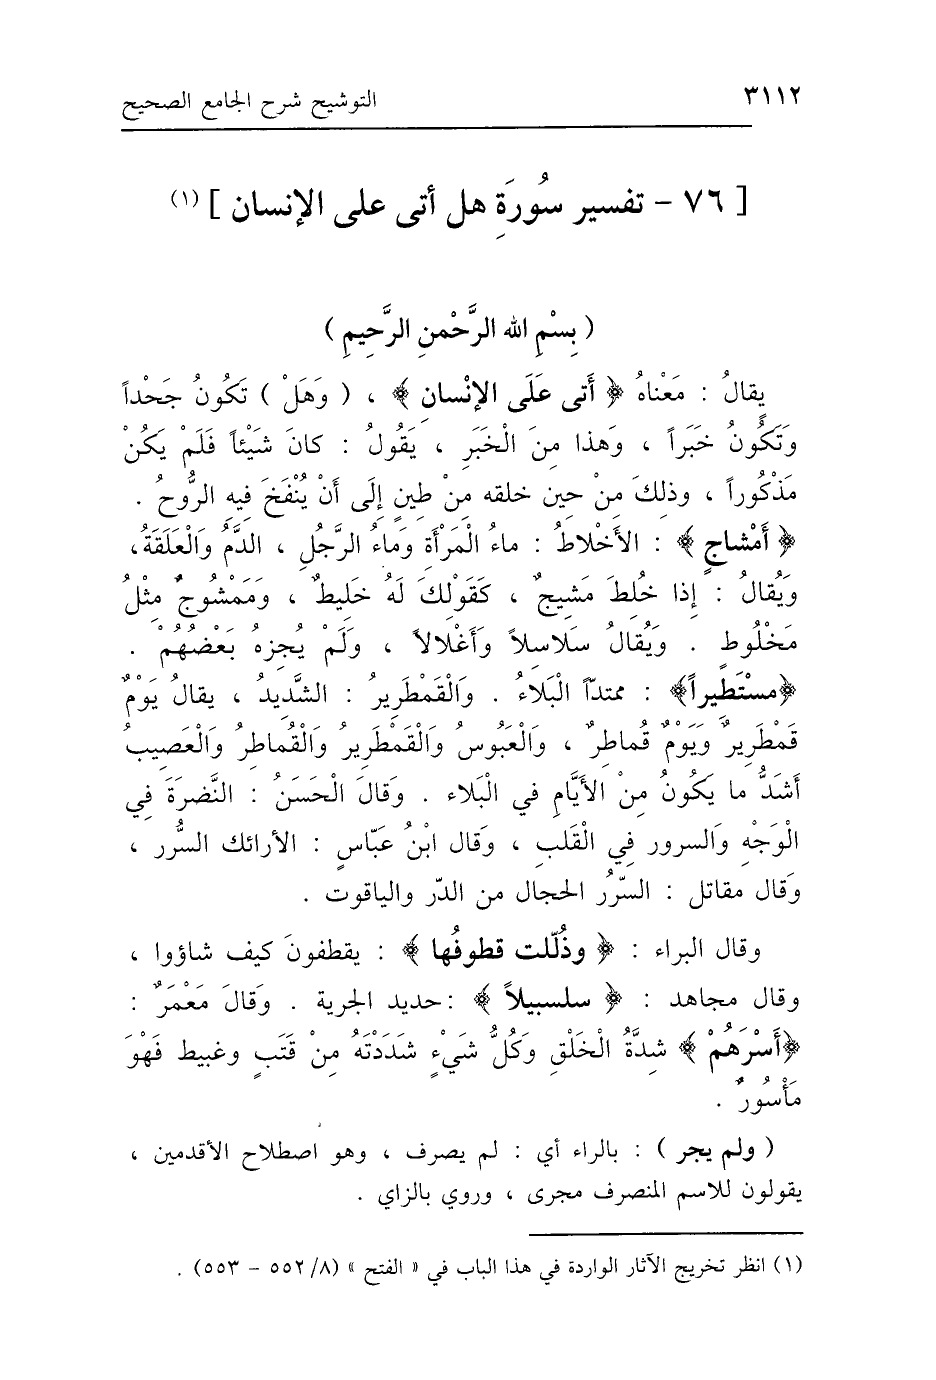 ٣١١٢ التوشيح شرح الجامع الصحيح
[ ٧٦ - تفسير سُورَةِ هل أتى على الإنسان ] (١)
( بِسْمِ الله الرَّحْمنِ الرَّحِيمِ )
يقالُ : مَعْناهُ ﴿ أَتى عَلَى الإنْسانِ ﴾ ، ( وَهَلْ ) تَكُونُ جَحْداً
وَتَكُونُ خَبَراً ، وَهذا مِنَ الْخَبَرِ ، يَقُولُ : كانَ شَيْئاً فَلَمْ يَكُنْ
مَذْكُوراً ، وذلِكَ مِنْ حِينِ خلقه مِنْ طِينٍ إلَى أَنْ يُنْفَخَ فِيهِ الرُّوحُ .
﴿ أَمْشاجٍ ﴾ : الأَخْلاطُ : ماءُ الْمَرْأَةِ وَماءُ الرَّجُلِ ، الدَّمُ وَالْعَلَقَةُ،
وَيُقالُ : إِذا خُلِطَ مَشيِجٌ ، كَقَوْلِكَ لَهُ خَلِيطٌ ، وَمَمْشُوجٌ مِثْلُ
مَخْلُوطٍ . وَيُقالُ سَلاسِلاً وَأَغْلالاً ، وَلَمْ يُجِزهُ بَعْضُهُمْ .
﴿مستَطِيراً﴾ : ممتدّاً الْبَلاءُ . وَالْقَمْطَرِيرُ : الشَّدِيدُ ، يقالُ يَوْمٌ
قَمْطَرِيرٌ وَيَوْمٌ قُماطِرٌ ، وَالْعَبُوسُ وَالْقَمْطَرِيرُ وَالْقُماطِرُ وَالْعَصِيبُ
أَشَدُّ ما يَكُونُ مِنْ الأَيَّامِ في الْبَلاء . وَقالَ الْحَسَنُ : النَّضرَةَ فِي
الْوَجْهِ وَالسرور فِي الْقَلبِ ، وَقال ابْنُ عَبّاسٍ : الأرائك السُّرر ،
وَقال مقاتل : السّرُرُ الحجال من الدّر والياقوت .
وقال البراء : ﴿ وذُلّلت قطوفُها ﴾ : يقطفونَ كيف شاؤوا ،
وقال مجاهد : ﴿ سلسبيلاً ﴾ :حديد الجرية . وَقالَ مَعْمَرٌ :
﴿أَسْرَهُمْ ﴾ شِدَّةُ الْخَلْقِ وَكُلُّ شَيْءٍ شَدَدْتَهُ مِنْ قَتَبٍ وغبيط فَهْوَ
مَأْسُورٌ .
( ولم يجر ) : بالراء أي : لم يصرف ، وهو اصطلاح الأقدمين ،
يقولون للاسم المنصرف مجرى ، وروي بالزاي .
(١) انظر تخريج الآثار الواردة في هذا الباب في « الفتح » (٨/ ٥٥٢ - ٥٥٣) .